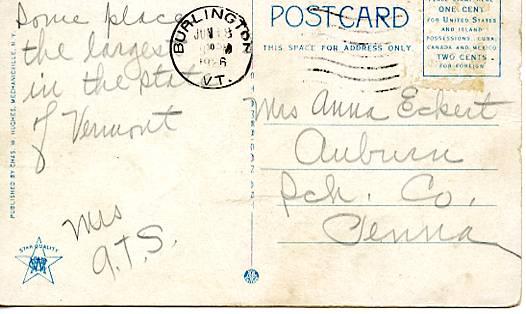 Some place
the largest
in the state
of Vermont
Mrs
A.T.S.
PUBLISHED BY CHAS. W. HUGHES, MECHANICVILLE, N.Y.
STAR QUALITY
BURLINGTON
JUN
VT.
POSTCARD
THIS SPACE FOR ADDRESS ONLY
ONE CENT
FOR UNITED STATES
AND ISLAND
POSSESSIONS, CUBA,
CANADA AND MEXICO
TWO CENTS
FOR FOREIGN
Mrs Anna Eckert
Auburn
Sch. Co.
Penna